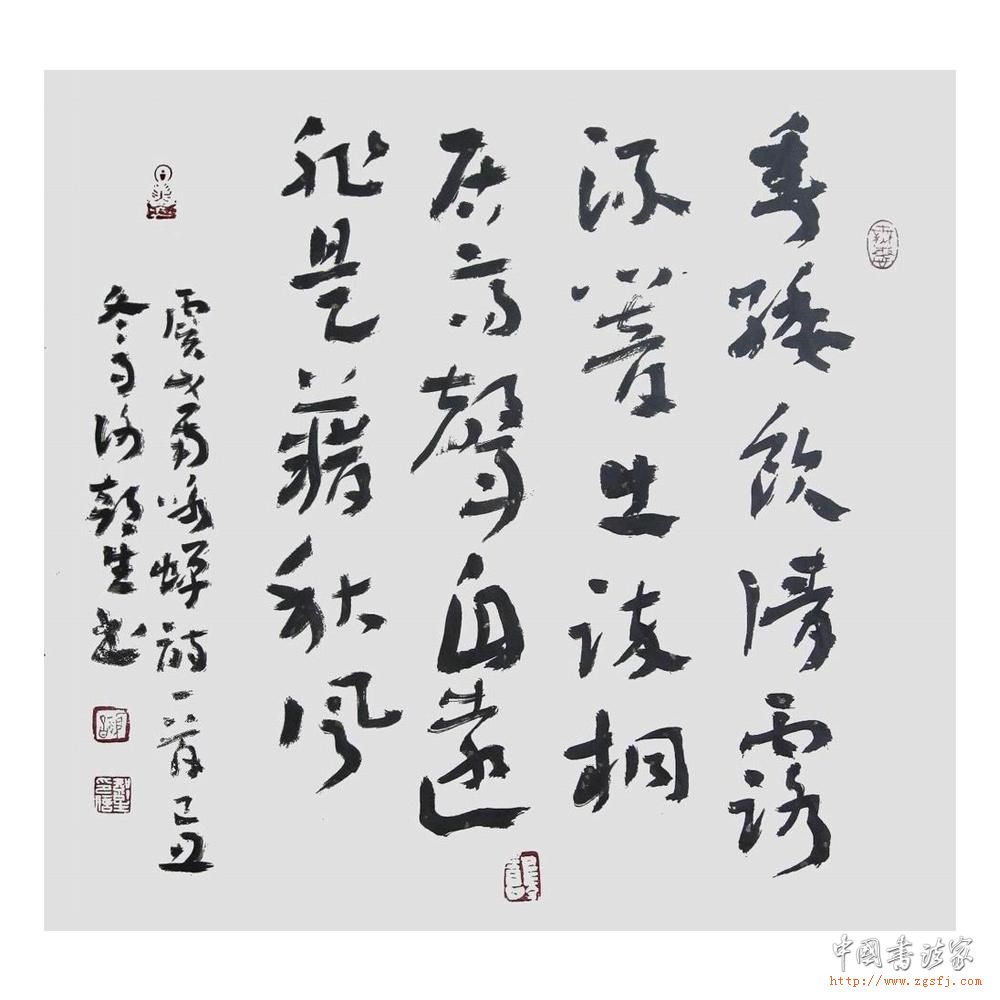 垂緌飲清露
流響出疎桐
居高聲自遠
非是藉秋風
虞世南咏蟬詩一首己丑
冬月生書
中國書法家
http://www.zgsfj.com